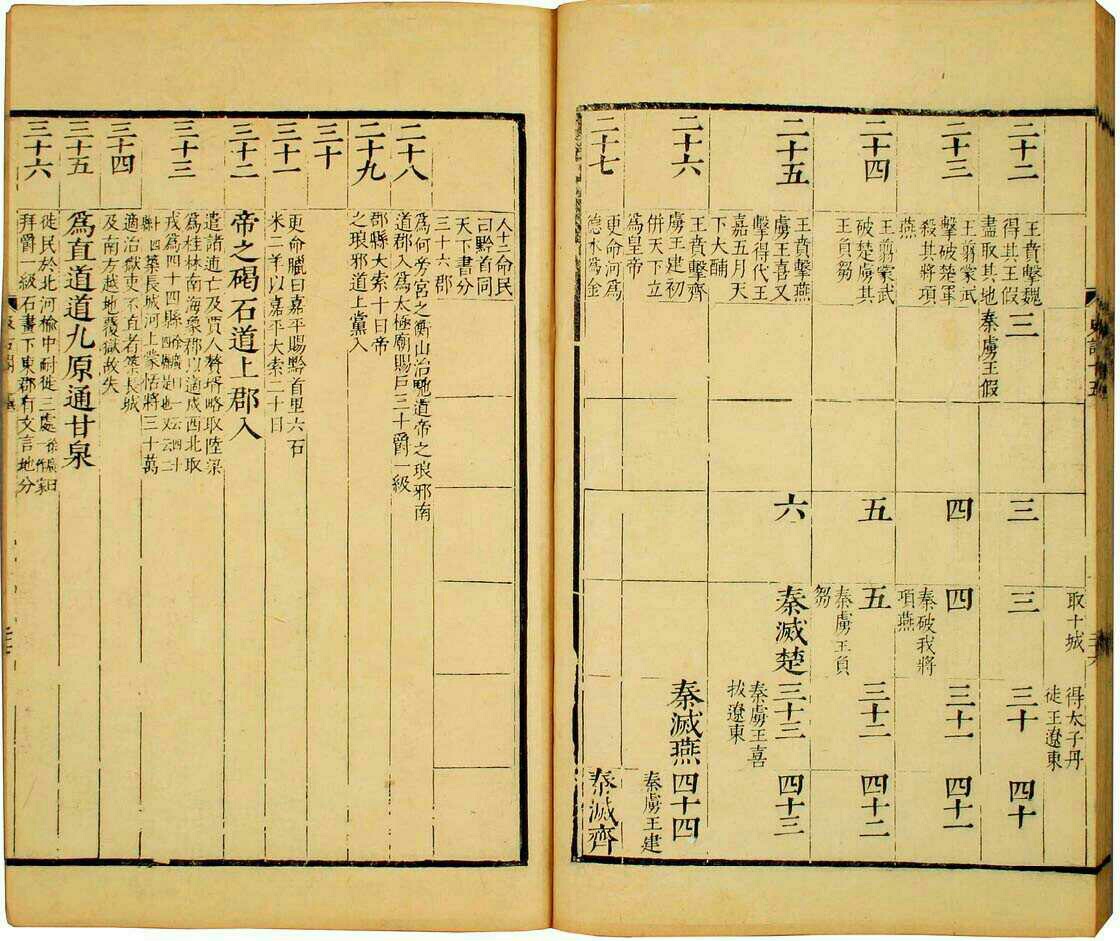 取十城
得太子丹
徙王遼東
二十二
王賁擊魏
得其王假
盡取其地
三
秦虜王假
三
三
三十
四十
二十三
王翦蒙武
擊破楚軍
殺其將項
燕
四
四
秦破我將
項燕
三十一
四十一
二十四
王翦蒙武
破楚虜其
王負芻
五
五
秦虜王負
芻
三十二
四十二
二十五
王賁擊燕
虜王喜又
擊得代王
嘉五月天
下大酺
六
秦滅楚
三十三
秦虜王喜
拔遼東
四十三
二十六
王賁擊齊
虜王建初
併天下立
爲皇帝
秦滅燕
四十四
秦虜王建
二十七
更命河爲
德水爲金
秦滅齊
人十二命民
曰黔首同
天下書分
三十六郡
二十八
爲阿旁宮之衡山治馳道帝之琅邪南
道郡入爲太極廟賜戶三十爵一級
二十九
郡縣大索十日帝
之琅邪道上黨入
三十
三十一
更命臘曰嘉平賜黔首里六石
米二羊以嘉平大索二十日
三十二
帝之碣石道上郡入
三十三
遣諸逋亡及賈人贅壻略取陸梁
爲桂林南海象郡以適戍西北取
戎爲四十四縣徐廣曰一云四十
四縣是也又云二十四縣
築長城河上蒙恬將三十萬
三十四
適治獄吏不直者築長城
及南方越地覆獄故失
三十五
爲直道道九原通甘泉
三十六
徙民於北河榆中耐徙三處徐廣曰一作家
拜爵一級石晝下東郡有文言地分